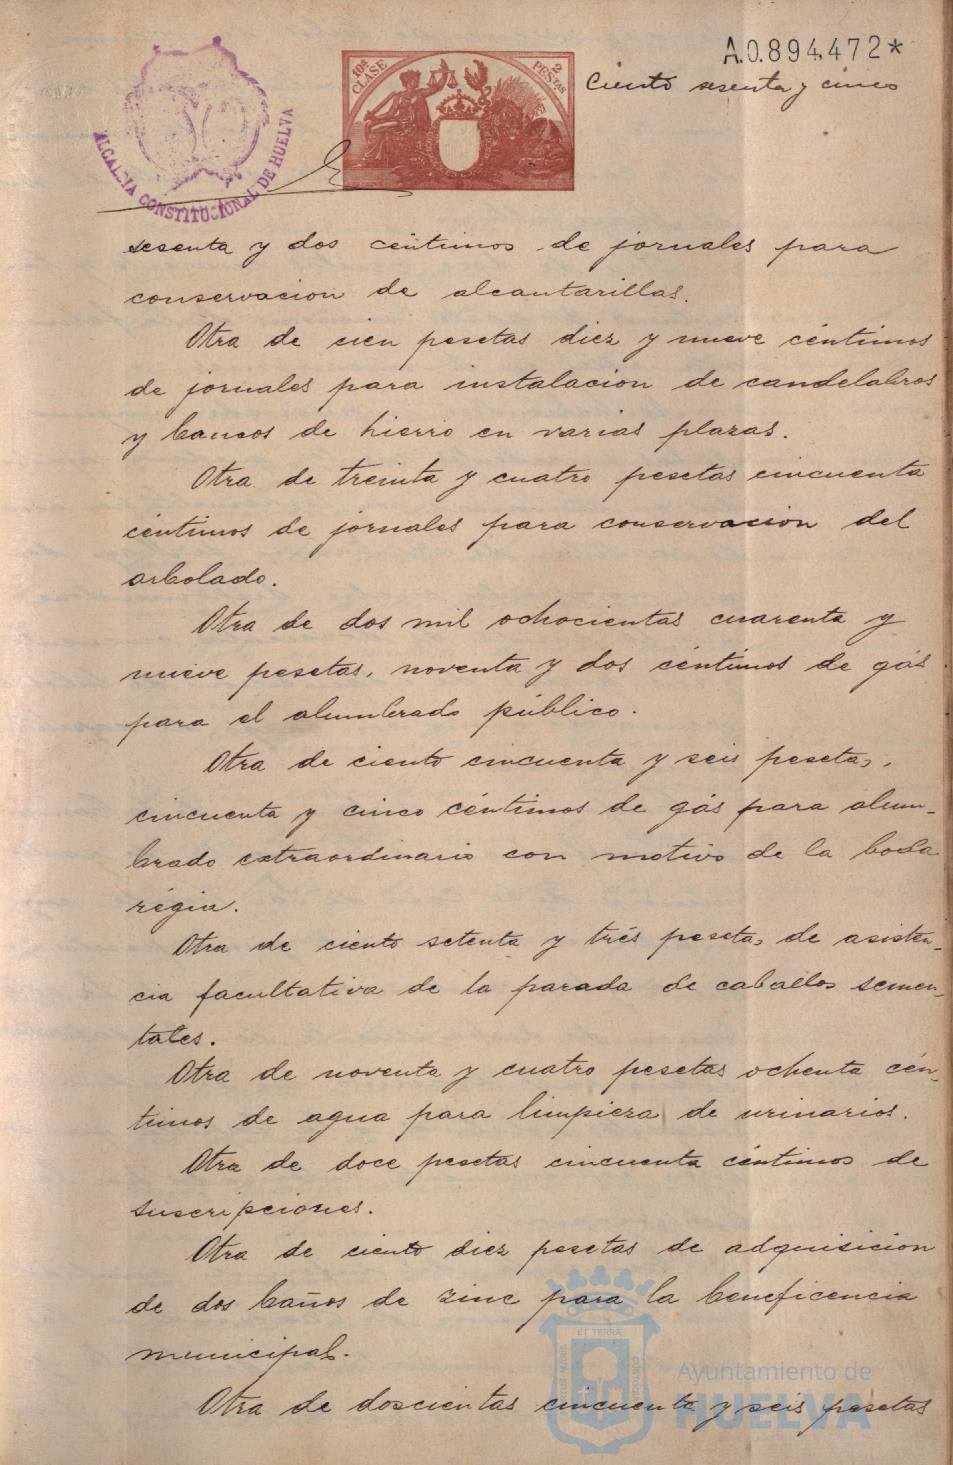 A.0.894.472*
Ciento sesenta y cinco
10ª CLASE
2 PESETAS
ALCALDIA CONSTITUCIONAL DE HUELVA
sesenta y dos céntimos de jornales para
conservacion de alcantarillas.
Otra de cien pesetas diez y nueve céntimos
de jornales para instalacion de candelabros
y bancos de hierro en varias plazas.
Otra de treinta y cuatro pesetas cincuenta
céntimos de jornales para conservacion del
arbolado.
Otra de dos mil ochocientas cuarenta y
nueve pesetas, noventa y dos céntimos de gás
para el alumbrado público.
Otra de ciento cincuenta y seis pesetas,
cincuenta y cinco céntimos de gás para alum-
brado extraordinario con motivo de la boda
régia.
Otra de ciento setenta y trés pesetas de asisten-
cia facultativa de la parada de caballos semen-
tales.
Otra de noventa y cuatro pesetas ochenta cén-
timos de agua para limpieza de urinarios.
Otra de doce pesetas cincuenta céntimos de
suscripciones.
Otra de ciento diez pesetas de adquisicion
de dos baños de zinc para la beneficencia
municipal.
Otra de doscientas cincuenta y seis pesetas
ET TERRÆ
PORTUS MARIS
CUSTODIA
Ayuntamiento de
HUELVA